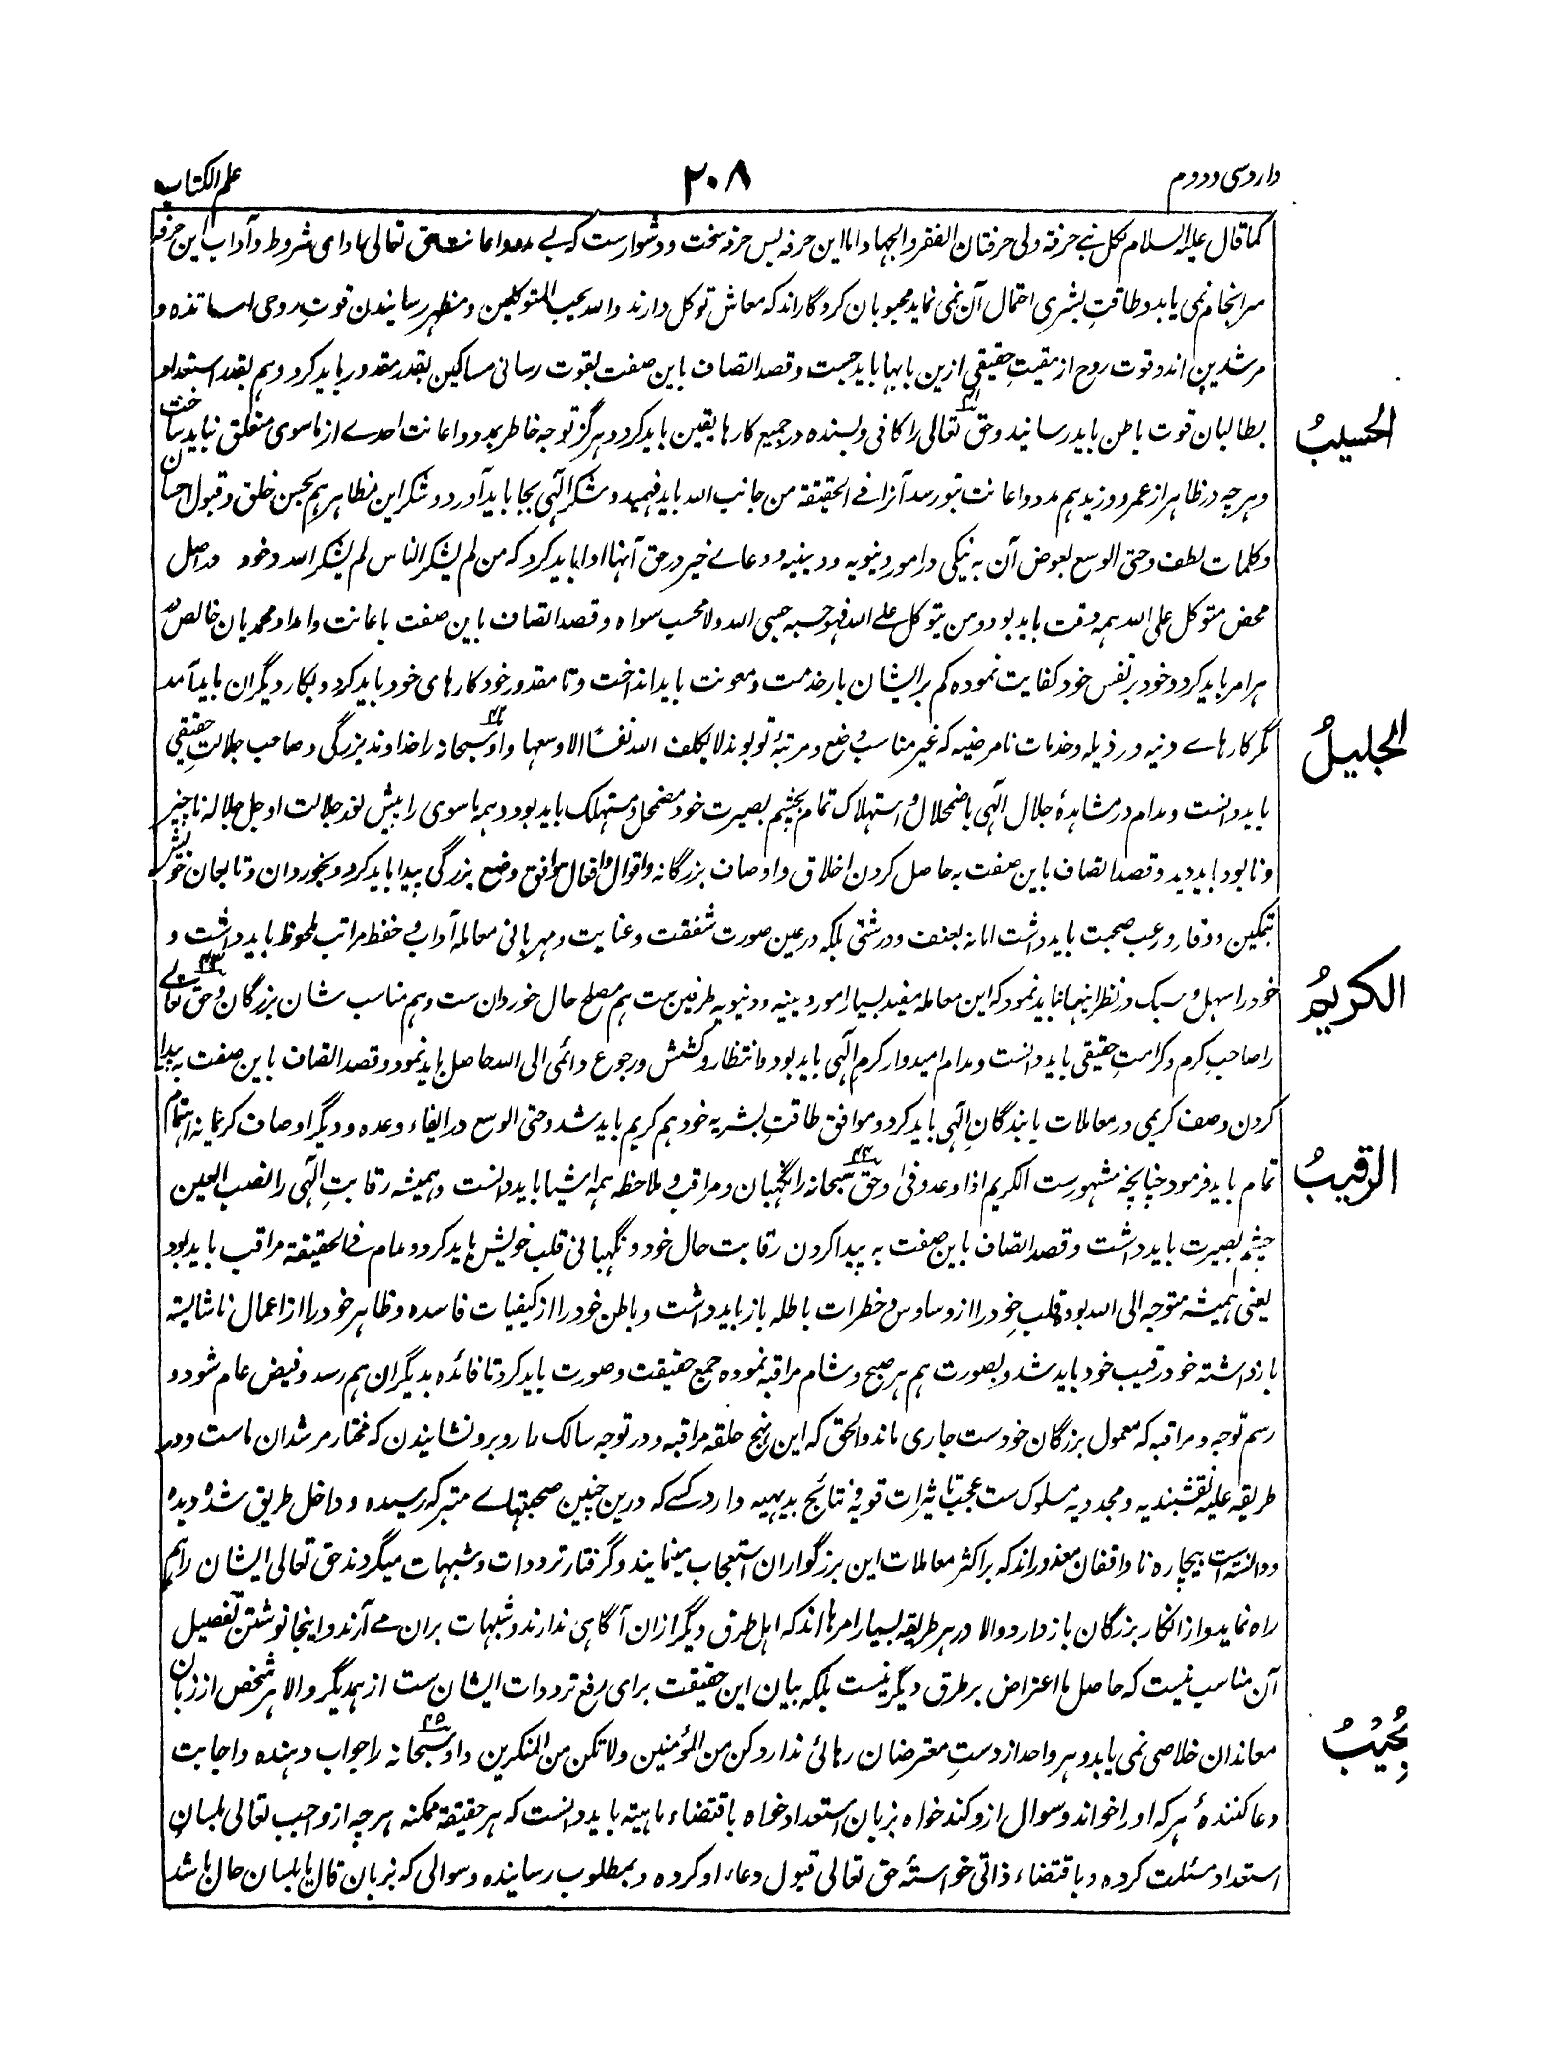 دارو سی و دوم
۲۰۸
علم الکتاب
کما قال علیه السلام لکل نبے حرفة ولی حرفتان الفقر والجهاد اما این حرفه بس حرفه سخت و دشوارست که بے مدد و اعانت حق تعالی ہا ادای شروط و آداب این حرفه
سرانجام نمی یابد و طاقتِ بشری احتمال آن نمی نماید محبوبان کردگاراند که معاش توکل دارند واللہ یحب المتوکلین و مظہر رسانیدن قوتِ روحی اساتذه و
مرشدین اند و قوت روح از مقیتِ حقیقی ازین بابہا باید جست و قصد اتصاف باین صفت بقوت رسانی مساکین بقدر مقدور باید کرد و ہم بقدر استعداد
الحسیبُ
بطالبان قوت باطن باید رسانید و حق ۴۱ تعالی را کافی و بسنده در جمیع کارہا یقین باید کرد و ہرگز توجه خاطر بمدد و اعانت احدے از ماسوی متعلق نباید ساخت
و ہرچه در ظاہر از عمرو و زید ہم مدد و اعانت بتو رسد آنرا فے الحقیقة من جانب اللہ باید فہمید و شکر الٰہی بجا باید آورد و شکر این مظاہر ہم بحسن خلق و قبول احسان
و کلمات لطف و حتی الوسع بعوض آن به نیکی در امور دنیویه و دینیه و دعاے خیر در حق آنہا ادا باید کرد که من لم یشکر الناس لم یشکر اللہ و خود در اصل
محض متوکل علی اللہ ہمه وقت باید بود و من یتوکل علے اللہ فہو حسبه حسبی اللہ ولا محسب سواه و قصد اتصاف باین صفت باعانت و امداد محمدیان خالص در
ہر امر باید کرد و خود بر نفس خود کفایت نموده کم بر ایشان بار خدمت و معونت باید انداخت و تا مقدور خود کارہای خود باید کرد و بکار دیگران باید آمد
الجلیلُ
مگر کارہاے دنیه و رذیله و خدمات نامرضیه که غیر مناسب وضع و مرتبۂ تو بود لا یکلف اللہ نفسًا الا وسعہا و او ۴۲ سبحانه را خداوند بزرگی و صاحب جلالتِ حقیقی
باید دانست و مدام در مشاہدۂ جلال الٰہی باضمحلال و استہلاک تمام بچشم بصیرت خود مضمحل و مستہلک باید بود و ہمه ماسوی را پیش نور جلالت او جل جلاله ناچیز
و نابود باید دید و قصد اتصاف باین صفت به حاصل کردن اخلاق و اوصاف بزرگانه و اقوال و افعال موافق وضع بزرگی پیدا باید کرد و بخوردان و تابعان خویش
بتمکین و وقار و رعب صحبت باید داشت اما نه بعنف و درشتی بلکه در عین صورت شفقت و عنایت و مہربانی معاملۂ آداب و حفظ مراتب ملحوظ باید داشت و
الکریمُ
خود را سہل و سبک در نظر اینہا نباید نمود که این معامله مفید بسیار امور دینیه و دنیویه طرفین ست ہم مصلح حال خوردان ست و ہم مناسب شان بزرگان و حق ۴۳ تعالے
را صاحبِ کرم و کرامتِ حقیقی باید دانست و مدام امیدوار کرمِ الٰہی باید بود و انتظار و کشش و رجوع دائمی الی اللہ حاصل باید نمود و قصد اتصاف باین صفت به پیدا
کردن وصف کریمی در معاملات با بندگانِ الٰہی باید کرد و موافق طاقتِ بشریه خود ہم کریم باید شد و حتی الوسع در ایفاء وعده و دیگر اوصاف کریمانه اہتمام
الرقیبُ
تمام باید فرمود چنانچه مشہورست الکریم اذا وعد وفیٰ و حق ۴۴ سبحانه را نگہبان و مراقب و ملاحظ ہمه اشیا باید دانست و ہمیشه رقابتِ الٰہی را نصب العین
چشم بصیرت باید داشت و قصد اتصاف باین صفت به پیدا کردن رقابت حال خود و نگہبانی قلب خویش باید کرد و مدام فے الحقیقة مراقب باید بود
یعنی ہمیشه متوجه الی اللہ بود قلبِ خود را از وساوس و خطرات باطله باز باید داشت و باطن خود را از کیفیات فاسده و ظاہر خود را از اعمال ناشایسته
بازداشته خود رقیب خود باید شد و بصورت ہم ہر صبح و شام مراقبه نموده جمع حقیقت و صورت باید کرد تا فائده بدیگران ہم رسد و فیض عام شود و
رسم توجه و مراقبه که معمول بزرگان خودست جاری ماند و الحق که این نہج حلقه مراقبه و در توجه سالک را روبرو نشانیدن که مختار مرشدان ماست و در
طریقه علیه نقشبندیه و مجددیه مسلوک ست عجب تاثیرات قویه و نتائج بدیہیه دارد کسے که درین چنین صحبتہاے متبرکه رسیده و داخل طریق شده دیده
و دانسته است بیچاره ناواقفان معذوراند که بر اکثر معاملات این بزرگواران استعجاب مینمایند و گرفتار ترددات و شبہات میگردند حق تعالی ایشان را ہم
راه نماید و از انکار بزرگان باز دارد والا در ہر طریقه بسیار امرہا اند که اہل طرق دیگر ازان آگاہی ندارند و شبہات بران مے آرند و اینجا نوشتن تفصیل
آن مناسب نیست که حاصل ما اعتراض بر طرق دیگر نیست بلکه بیان این حقیقت برای رفع ترددات ایشان ست از ہمدیگر والا ہر شخص از زبان
مجیبُ
معاندان خلاصی نمی یابد و ہر واحد از دستِ معترضان رہائی ندارد و کن من المؤمنین ولا تکن من المنکرین و او ۴۵ سبحانه را جواب دہنده و اجابت
دعا کنندۂ ہر که او را خواند و سوال ازو کند خواه بزبان استعداد خواه باقتضاء ماہیته باید دانست که ہر حقیقة ممکنه ہرچه از واجب تعالی بلسانِ
استعداد مسئلت کرده و باقتضاء ذاتی خواسته حق تعالی قبول دعاء او کرده و بمطلوب رسانیده و سوالی که بزبان قال یا بلسان حال باشد